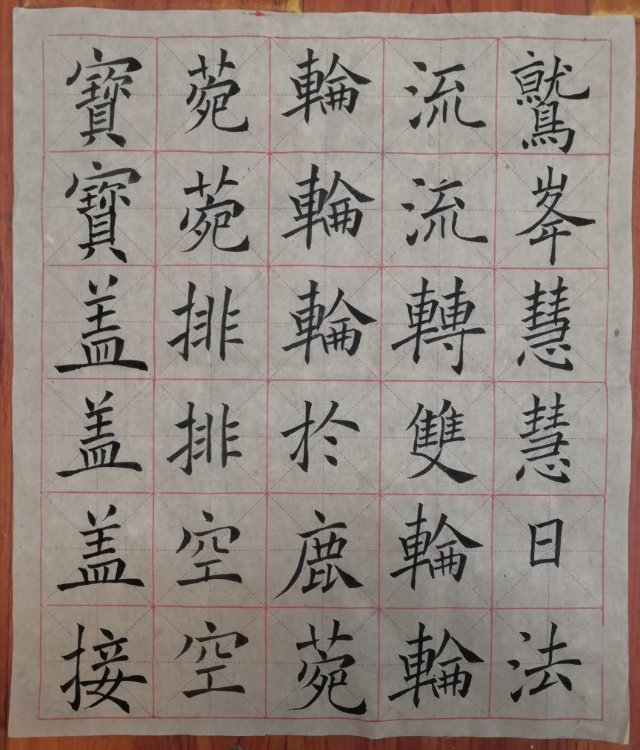 鷲峯慧慧日法
流流轉雙輪輪
輪輪輪於鹿菀
菀菀排排空空
寶寶盖盖盖接